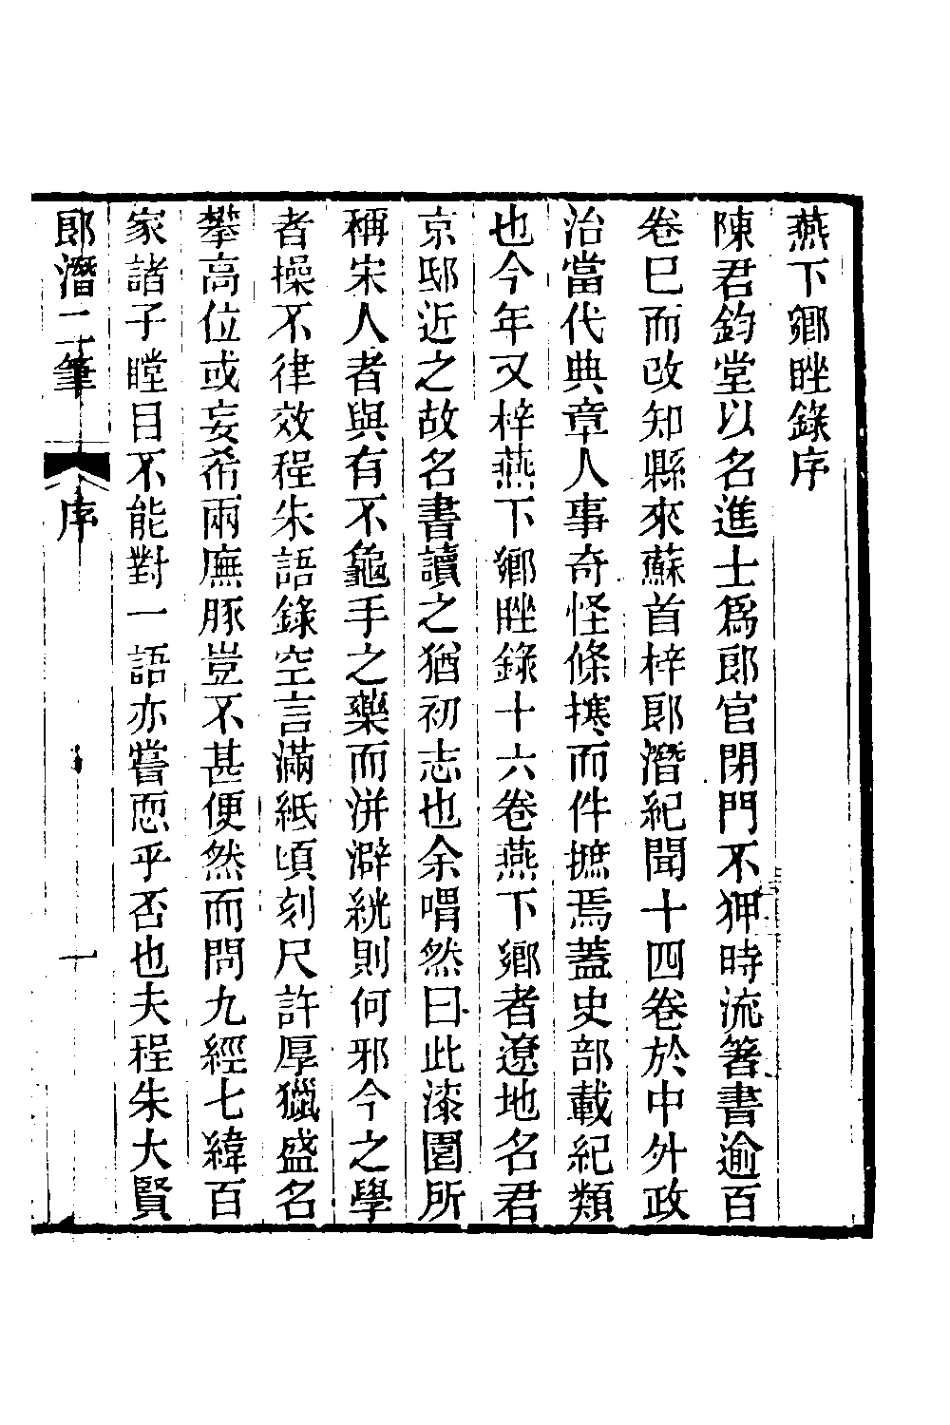 燕下鄉脞錄序
陳君鈞堂以名進士爲郎官閉門不狎時流箸書逾百
卷已而改知縣來蘇首梓郎潛紀聞十四卷於中外政
治當代典章人事奇怪條搴而件摭焉蓋史部載紀類
也今年又梓燕下鄉脞錄十六卷燕下鄉者遼地名君
京邸近之故名書讀之猶初志也余喟然曰此漆園所
稱宋人者與有不龜手之藥而洴澼絖則何邪今之學
者操不律效程朱語錄空言滿紙頃刻尺許厚獵盛名
攀高位或妄希兩廡豚豈不甚便然而問九經七緯百
家諸子瞠目不能對一語亦嘗恧乎否也夫程朱大賢
郎潛二筆 序 一